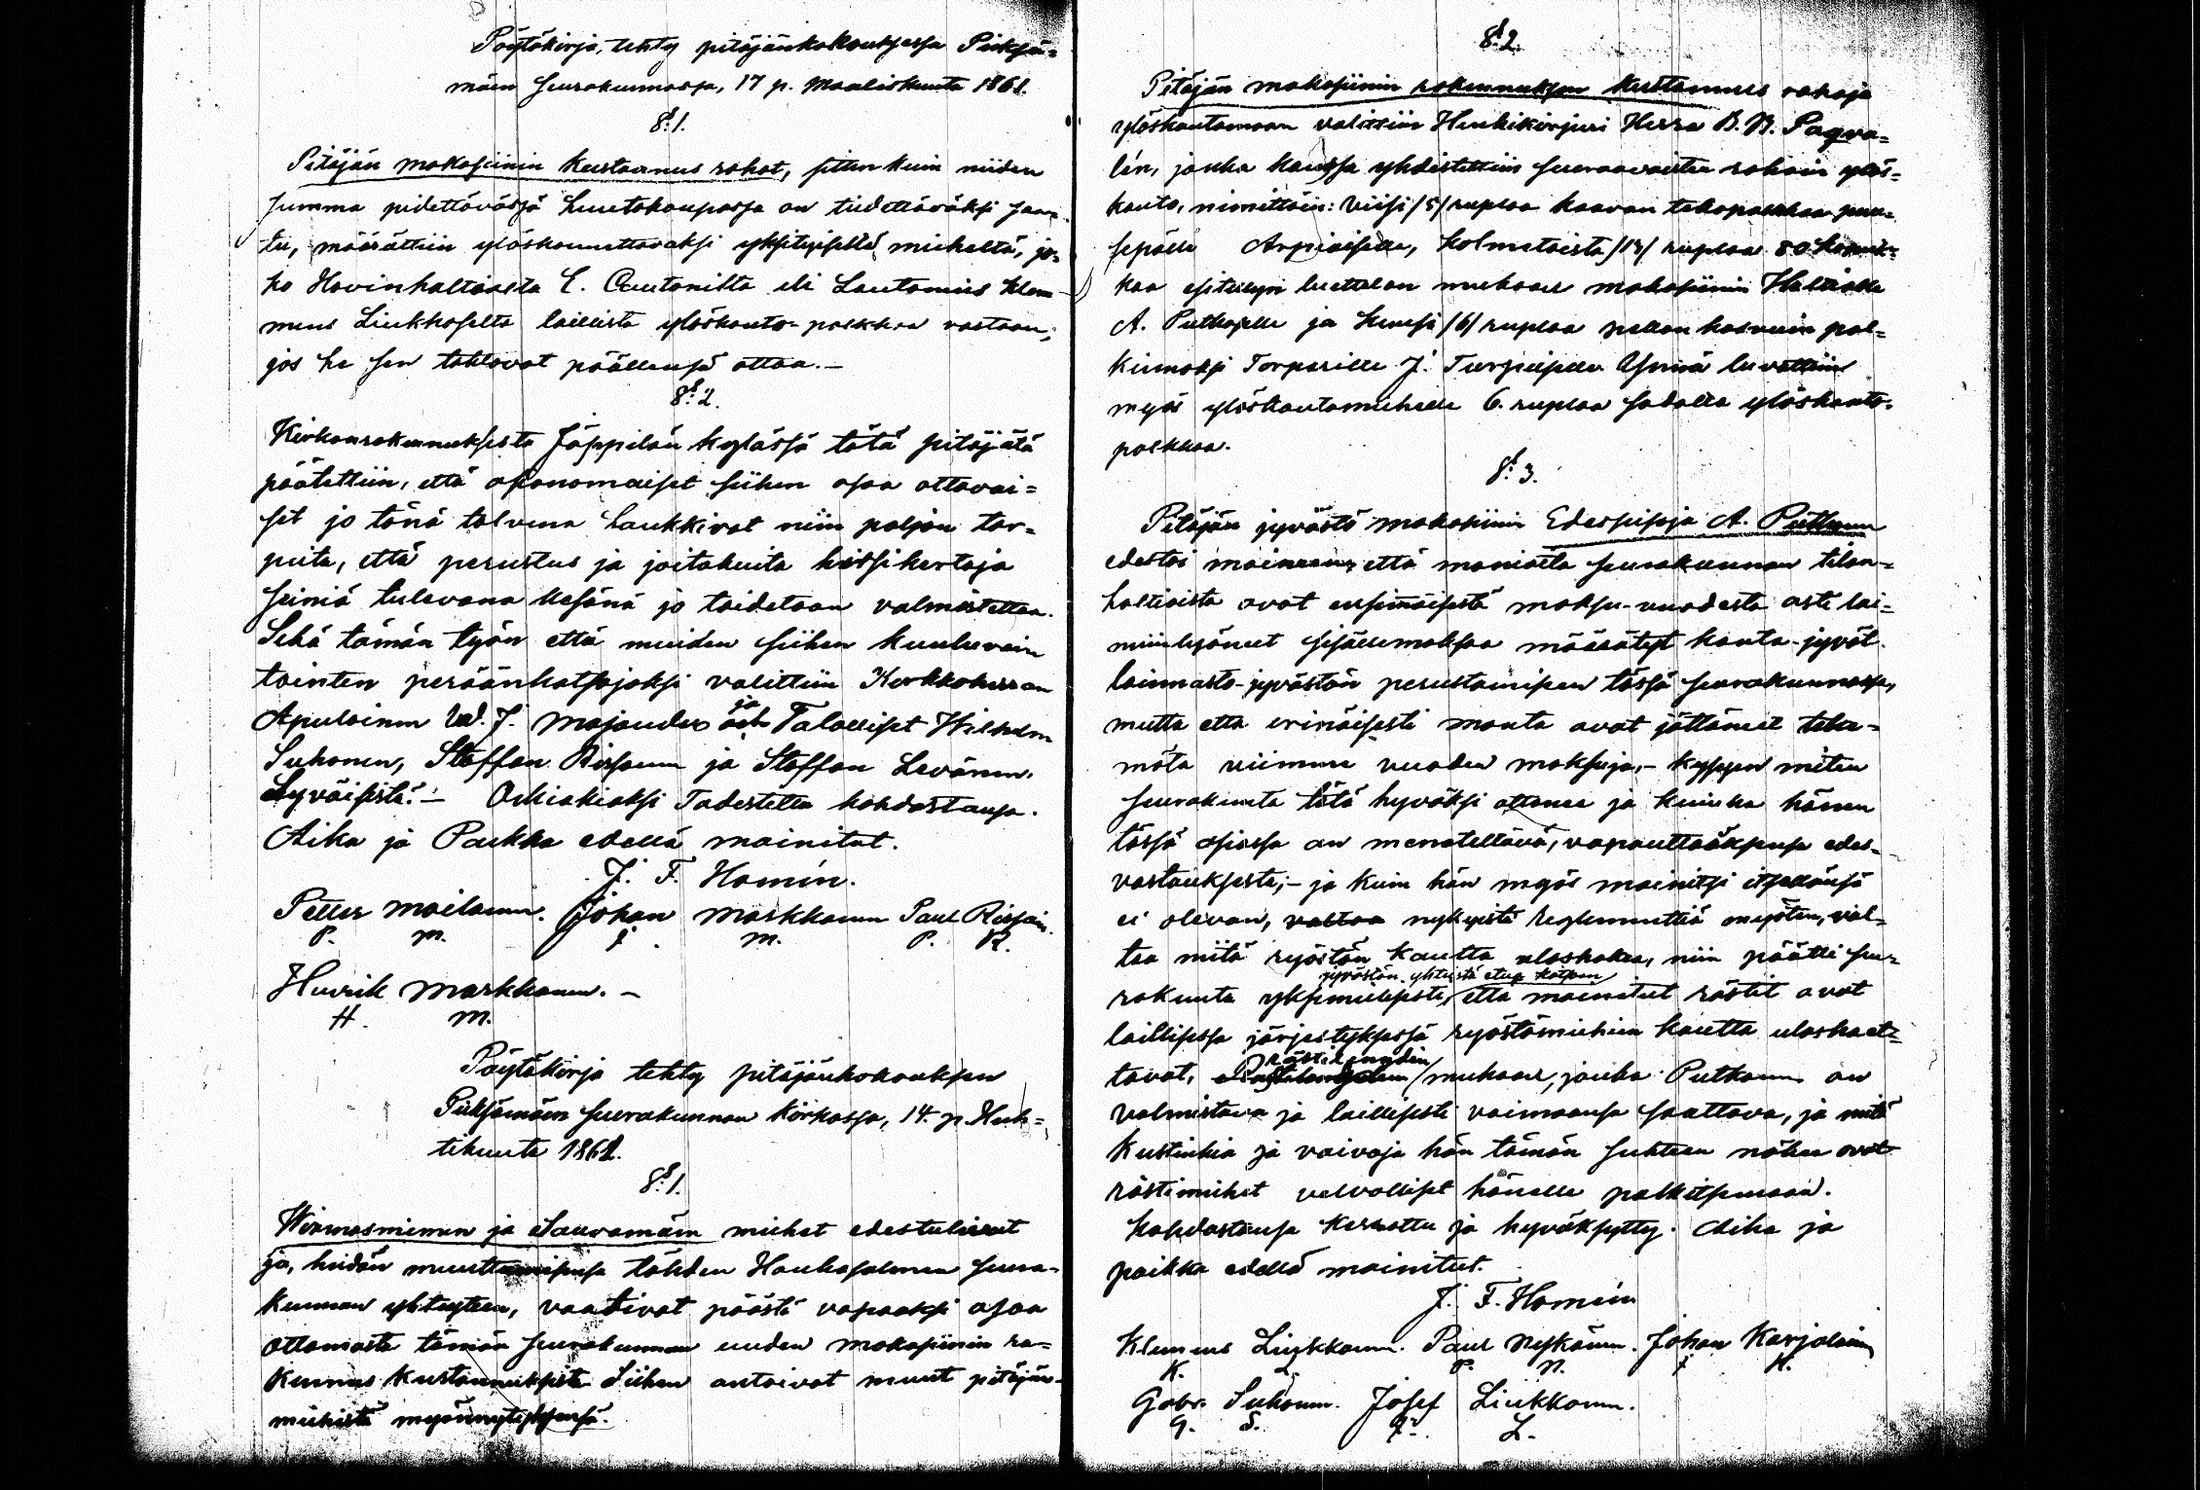 Pöytäkirja, tehty pitäjänkokouksessa Pieksä=
mäen seurakunnassa, 17 p. Maaliskuuta 1861.
§ 1.
Pitäjän makasiinin kustannus rahat, sitten kuin niiden
summa pidettävässä huutokaupassa on tiedettäväksi saa=
tu, määrättiin ylöskannettavaksi yksityisiltä miehiltä, jo=
ko Hovinhaltiasta C. Cautonilta eli Lautamies Klem=
mens Liukkoselta laillista ylöskanto-palkkaa vastaan,
jos he sen tahtovat päällensä ottaa.—
§ 2.
Kirkonrakennuksesta Jäppilän kylässä tätä pitäjätä
päätettiin, että asianomaiset siihen osaa ottavai=
set jo tänä talvena hankkivat niin paljon tar=
peita, että perustus ja joitakuita hirsikertoja
seiniä tulevana kesänä jo taidetaan valmistettaa.
Sekä tämän työn että muiden siihen kuuluvain
tointen peräänkatsojaksi valittiin Kirkkoherran
Apulainen Vd. J. Majander ja Talolliset Wilhelm
Suhonen, Staffan Rissanen ja Staffan Levänen
Syväisistä.— Oikiaksi Todestetta kohdastansa.
Aika ja Paikka edellä mainitut.
J. F. Homén.
Petter Moilanen. Johan Markkanen Paul Rissain.
P. M. J. M. P. R.
Henrik Markkanen.—
H. M.
Pöytäkirja tehty pitäjänkokouksen
Pieksämäen seurakunnan kirkossa, 14. p. Huh=
tikuuta 1861.
§ 1.
Wirmasniemen ja Sauvamäen miehet edestulivat
ja, heidän muuttamisensa tähden Haukasalmen seura=
kunnan yhteyteen, vaativat päästä vapaaksi osaa
ottamasta tämän seurakunnan uuden makasiinin ra=
kennus kustannuksista. Siihen antoivat muut pitäjän=
miehistä myönnytyksensä.
§ 2.
Pitäjän makasiinin rakennuksen kustannus rahoja
ylöskantamaan valittiin Henkikirjuri Herra B. B. Fagva=
lén, jonka kanssa yhdistettiin seuraavaisten rahain ylös=
kanto, nimittäin: Viisi /5/ ruplaa kaavan tekopalkkaa puu=
sepälle Arpiaiselle, kolmetoista /13/ ruplaa 80 kopeik=
kaa esitetyn luettelon mukaan makasiinin Haltialle
A. Putkoselle ja kuusi /6/ ruplaa pellon kasvuin pal=
kinnoksi Torparille J. Turpeiselle. Ynnä luvattiin
myös ylöskantomiehelle 6. ruplaa sadalta ylöskanto=
palkkaa.
§ 3.
Pitäjän jyvästö makasiinin Edesseisoja A. Putkonen
edestoi mainiten, että moniailta seurakunnan tilan=
haltioista ovat ensimmäisestä maksu-vuodesta asti lai=
minlyöneet sisällemaksaa määrätyt kanta-jyvät
lainasto-jyvästön perustamiseen tässä seurakunnassa,
mutta että erinäisesti monta ovat jättäneet teke=
mätä viimme vuoden maksuja,— kysyen miten
seurakunta tätä hyväksi ottanee ja kuinka hänen
tässä asiassa on menateltävä, vapauttaaksensa edes=
vastauksesta;— ja kuin hän myös mainitsi itsellänsä
ei olevan, nykyistä Reglementtiä myöten, val=
taa mitä ryöstön kautta uloshakea, niin päätti seu=
jyvästön yhteistä etua katsoen
rakunta yksimielisesti, että mainitut rästit ovat
laillisessa järjestyksessä ryöstömiehen kautta uloshaet=
tavat, rästilengdin mukaan, jonka Putkonen on
valmistava ja laillisesti voimaansa saattava, ja mitä
kustinkia ja vaivoja hän tämän suhteen näkee ovat
rästimiehet velvolliset hänelle palkitsemaan.
Kohdastansa kerrottu ja hyväksytty. Aika ja
paikka edellä mainitut.
J. F. Homén
Klemens Liukkonen. Paul Nykänen. Johan Karjalain
K. L. P. N. J. K.
Gabr. Suhonen. Josef Liukkonen.
G. S. J. L.